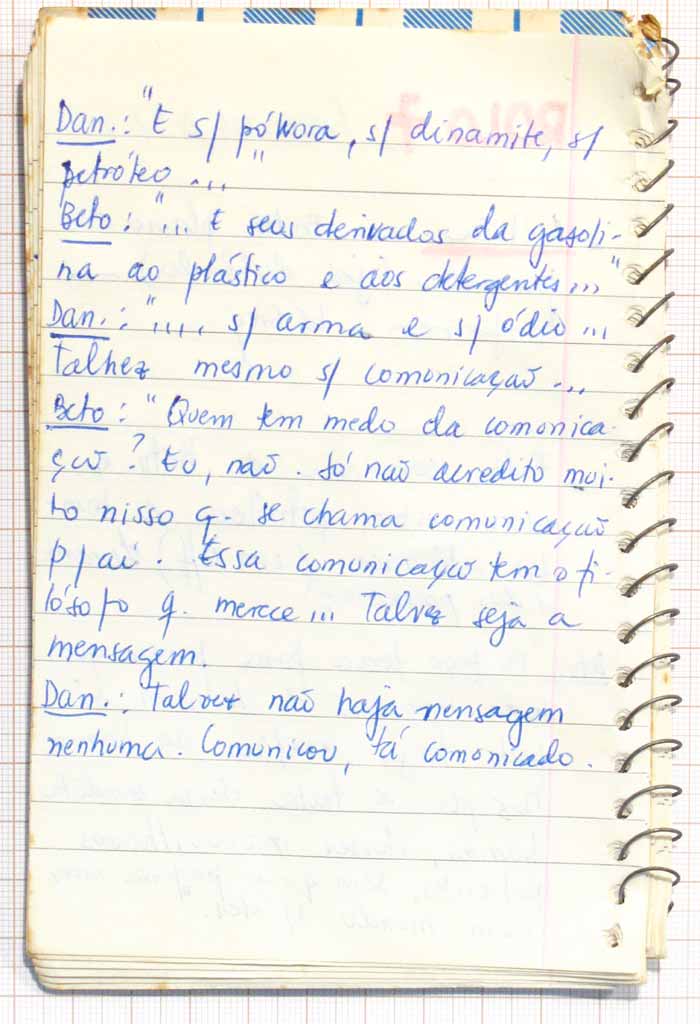 Dan.: "E s/ pólvora, s/ dinamite, s/
petróleo ..."
Beto: "... E seus derivados da gásoli-
na ao plástico e aos detergentes..."
Dan.: ".... s/ arma e s/ ódio ...
Talhez mesmo s/ comunicação ...
Beto: "Quem tem medo da comunica-
ção? Eu, não. Só não acredito mui-
to nisso q. se chama comunicação
p/ aí. Essa comunicação tem o fi-
lósofo q. merece... Talvez seja a
mensagem.
Dan.: Talvez não haja mensagem
nenhuma. Comunicou, tá comunicado.